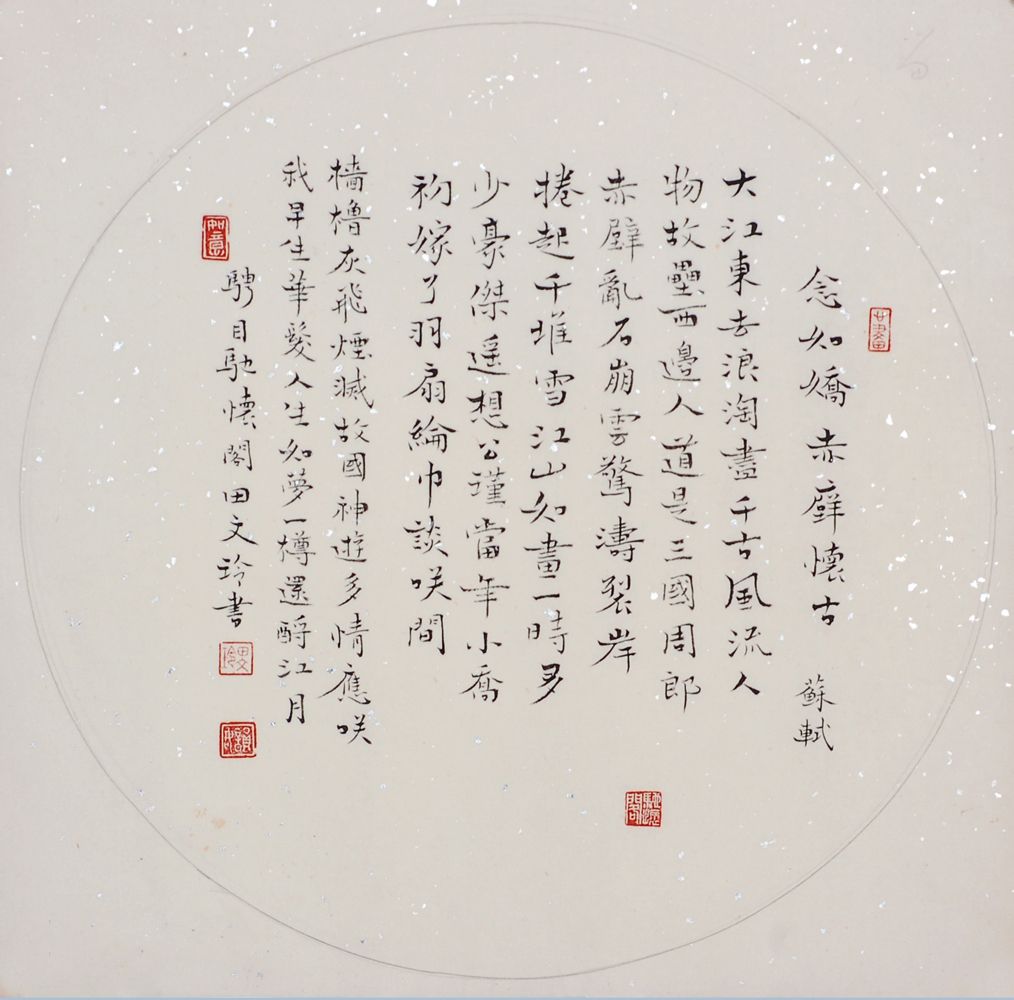 念奴嬌 赤壁懷古 蘇軾
大江東去浪淘盡千古風流人
物故壘西邊人道是三國周郎
赤壁亂石崩雲驚濤裂岸
捲起千堆雪江山如畫一時多
少豪傑遥想公瑾當年小喬
初嫁了羽扇綸巾談咲間
檣櫓灰飛煙滅故國神遊多情應咲
我早生華髮人生如夢一樽還酹江月
騁目馳懷閣田文玲書
如意